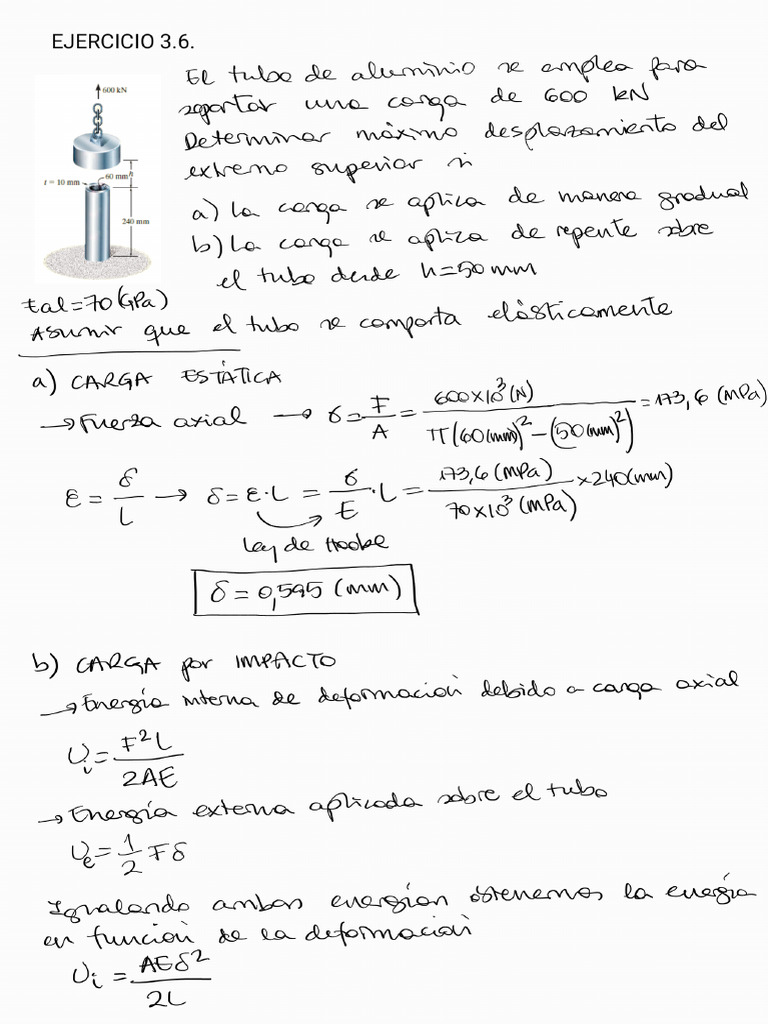 EJERCICIO 3.6.
El tubo de aluminio se emplea para
soportar una carga de 600 kN
Determinar máximo desplazamiento del
extremo superior si
a) La carga se aplica de manera gradual
b) La carga se aplica de repente sobre
el tubo desde h=50mm
600 kN
h
60 mm
t = 10 mm
240 mm
Eal=70(GPa)
Asumir que el tubo se comporta elásticamente
a) CARGA ESTÁTICA
→ Fuerza axial → σ = F/A = 600×10³(N) / π(60(mm)² - (50(mm)²) = 173,6 (MPa)
ε = δ/L → δ = ε·L = σ/E · L = 173,6 (MPa) / 70×10³ (MPa) × 240(mm)
Ley de Hooke
δ = 0,595 (mm)
b) CARGA por IMPACTO
→ Energía interna de deformación debido a carga axial
Ui = F²L / 2AE
→ Energía externa aplicada sobre el tubo
Ue = 1/2 Fδ
Igualando ambas energías obtenemos la energía
en función de la deformación
Ui = AEδ² / 2L